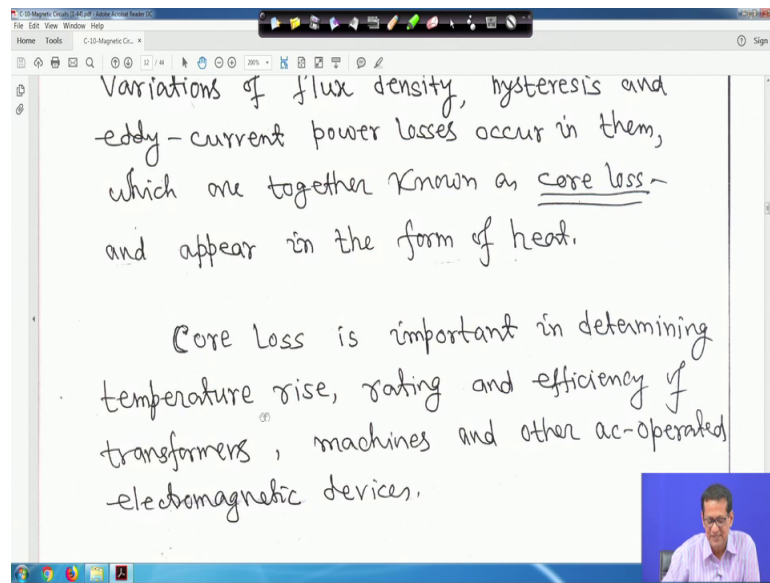 C-10-Magnetic Circuits [1-44].pdf - Adobe Acrobat Reader DC
File Edit View Window Help
Home Tools C-10-Magnetic Cir... × Sign
12 / 44 200%
Variations of flux density, hysteresis and
eddy-current power losses occur in them,
which are together known as core loss-
and appear in the form of heat.
Core Loss is important in determining
temperature rise, rating and efficiency of
transformers, machines and other ac-operated
electromagnetic devices.